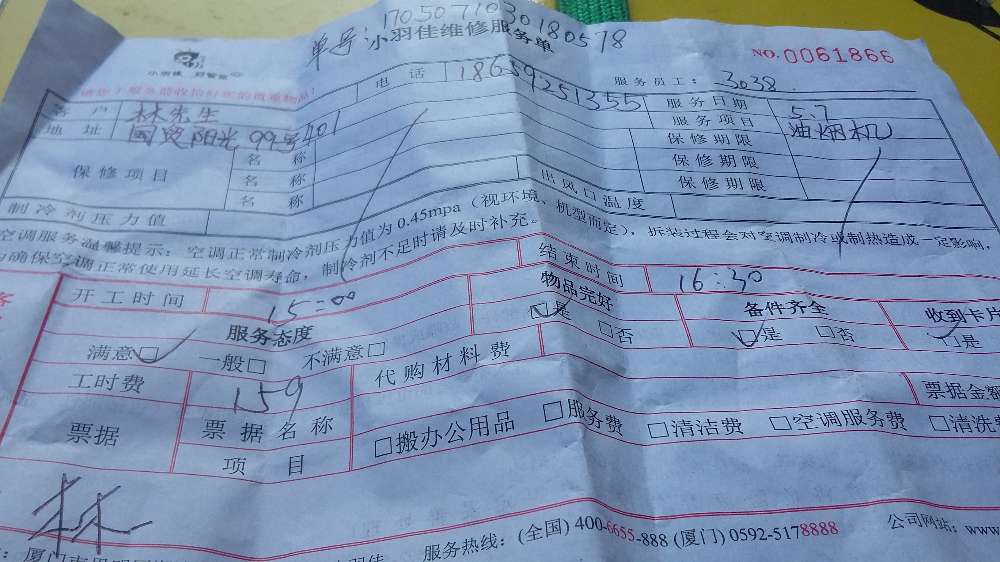 单号 170507103018057 8
小羽佳维修服务单
NO.0061866
小羽佳 好管家
电话 18659251355
服务员工: 3038
客户 林先生
服务日期 5.7
地址 国贸阳光99号401
服务项目 油烟机
保修项目
名称 保修期限
名称 保修期限
名称 保修期限
制冷剂压力值 出风口温度
空调服务温馨提示: 空调正常制冷剂压力值为0.45mpa (视环境、机型而定), 拆装过程会对空调制冷或制热造成一定影响,
为确保空调正常使用延长空调寿命, 制冷剂不足时请及时补充。
开工时间 15:00
结束时间 16:30
服务态度
物品完好 备件齐全 收到卡片
满意□ 一般□ 不满意□
□是 □否 □是 □否 □是
工时费 159 代购材料费
票据 票据名称 □搬办公用品 □服务费 □清洁费 □空调服务费 □清洗费
票据金额
项目
林
服务热线: (全国) 400-6655-888 (厦门) 0592-5178888
公司网站: www